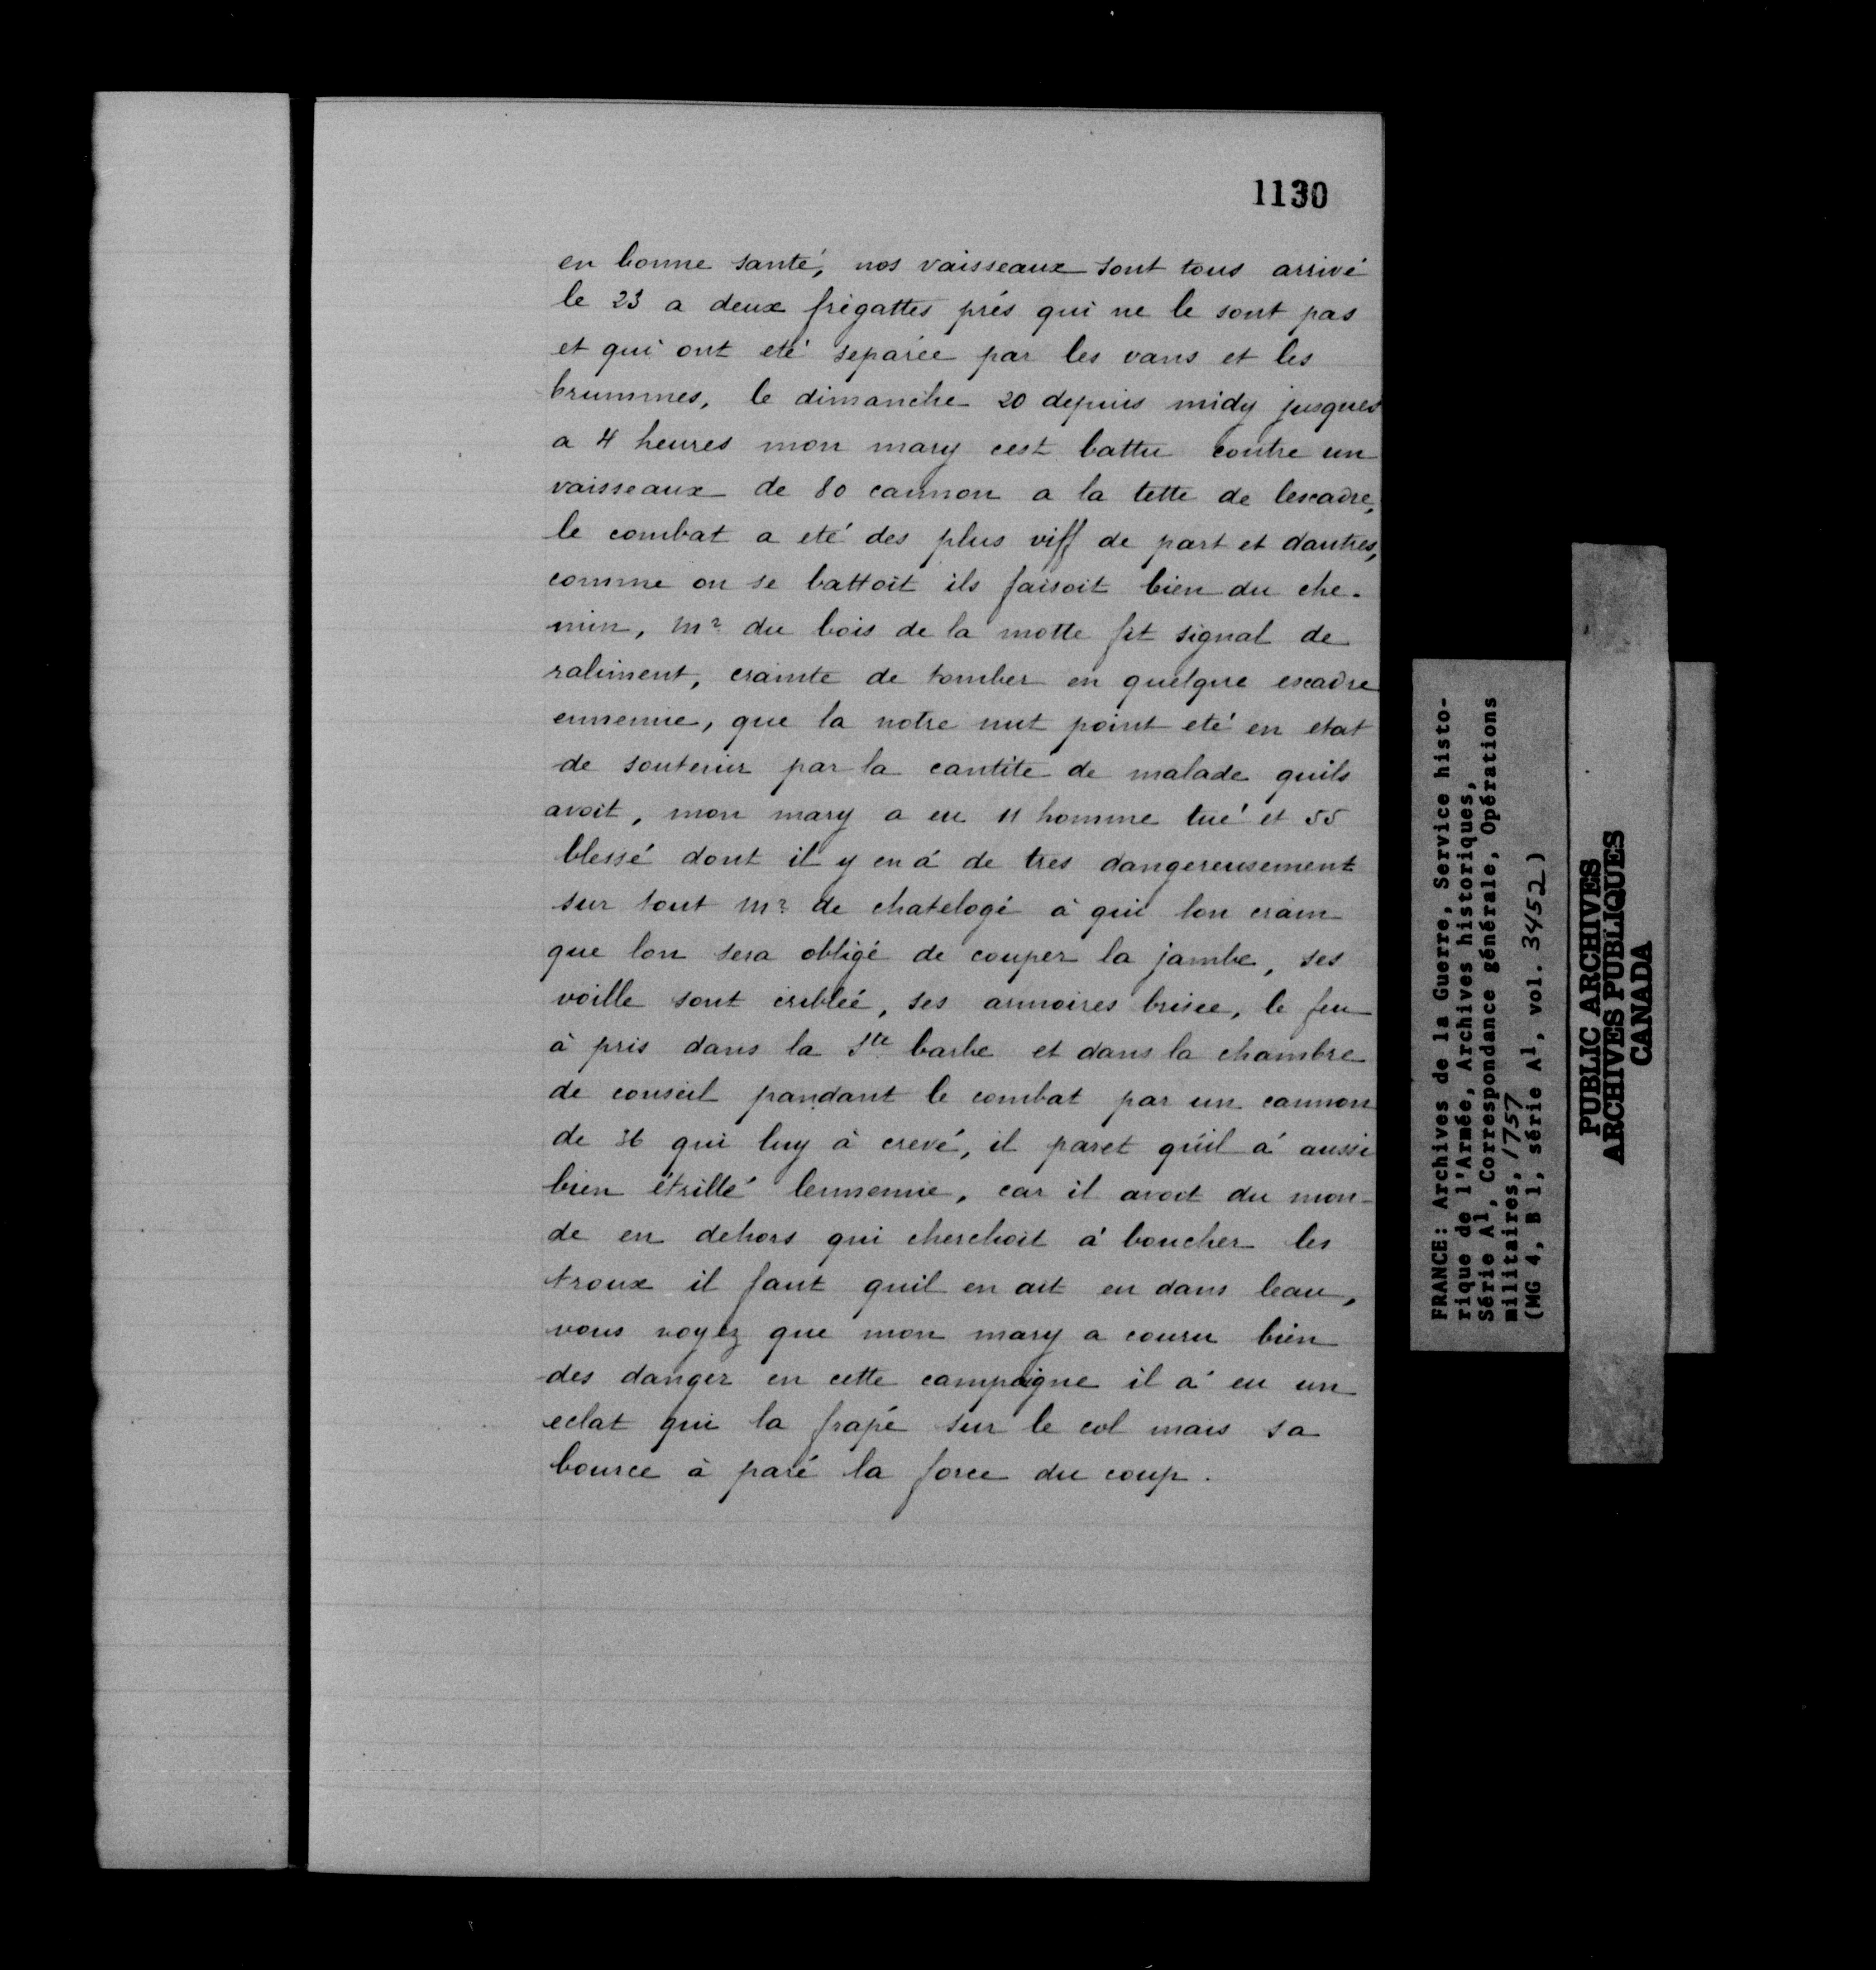 1130
en bonne santé, nos vaisseaux sont tous arrivé
le 23 a deux frégattes prés qui ne le sont pas
et qui ont eté separée par les vans et les
brummes, le dimanche 20 depuis midy jusques
a 4 heures mon mary cest battu contre un
vaisseaux de 80 cannon a la tette de lescadre,
le combat a eté des plus viff de part et dautres,
comme on se battoit ils faisoit bien du che-
min, mr du bois de la motte fit signal de
raliment, crainte de tomber en quelque escadre
ennemie, que la notre nut point eté en etat
de soutenir par la cantité de malade quils
avoit, mon mary a eu 11 homme tué et 55
blessé dont il y en á de tres dangereusement
sur tout mr de chatelogé à qui lon crain
que lon sera obligé de couper la jambe, ses
voille sont criblée, ses armoires brisee, le feu
à pris dans la Ste barbe et dans la chambre
de conseil pandant le combat par un cannon
de 36 qui luy à crevé, il paret qúil á aussi
bien étrillé lennemie, car il avoit du mon-
de en dehors qui cherchoit á boucher les
troux il faut quil en ait eu dans leau,
vous voyez que mon mary a couru bien
des danger en cette campaigne il á eu un
eclat qui la frapé sur le col mais sa
bource à paré la force du coup.
FRANCE: Archives de la Guerre, Service histo-
rique de l'Armée, Archives historiques,
Série A1, Correspondance générale, Opérations
militaires, 1757
(MG 4, B 1, série A1, vol. 3452)
PUBLIC ARCHIVES
ARCHIVES PUBLIQUES
CANADA